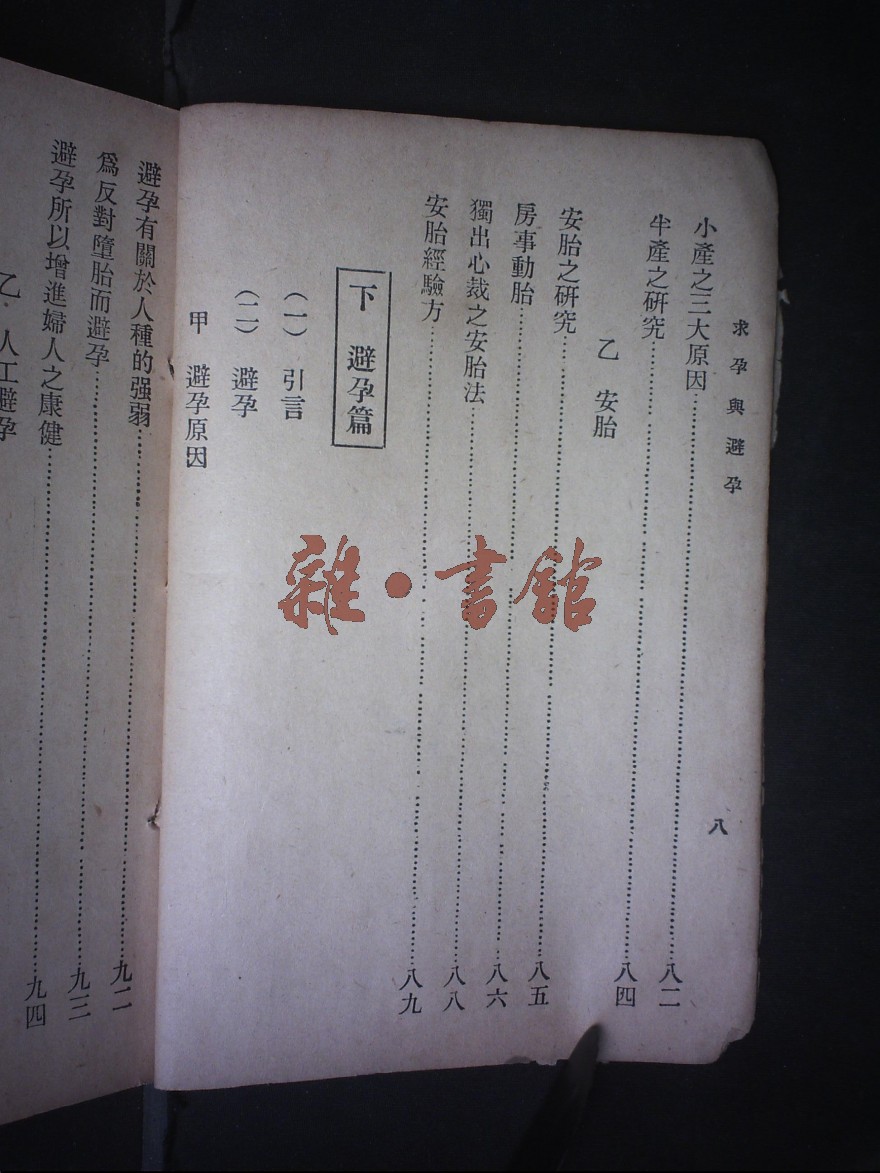 求孕與避孕
八
小產之三大原因…………八二
半產之研究…………八四
乙 安胎
安胎之研究…………八五
房事動胎…………八六
獨出心裁之安胎法…………八八
安胎經驗方…………八九
下 避孕篇
(一) 引言
(二) 避孕
甲 避孕原因
避孕有關於人種的强弱…………九二
爲反對墮胎而避孕…………九三
避孕所以增進婦人之康健…………九四
乙 人工避孕
雜·書館